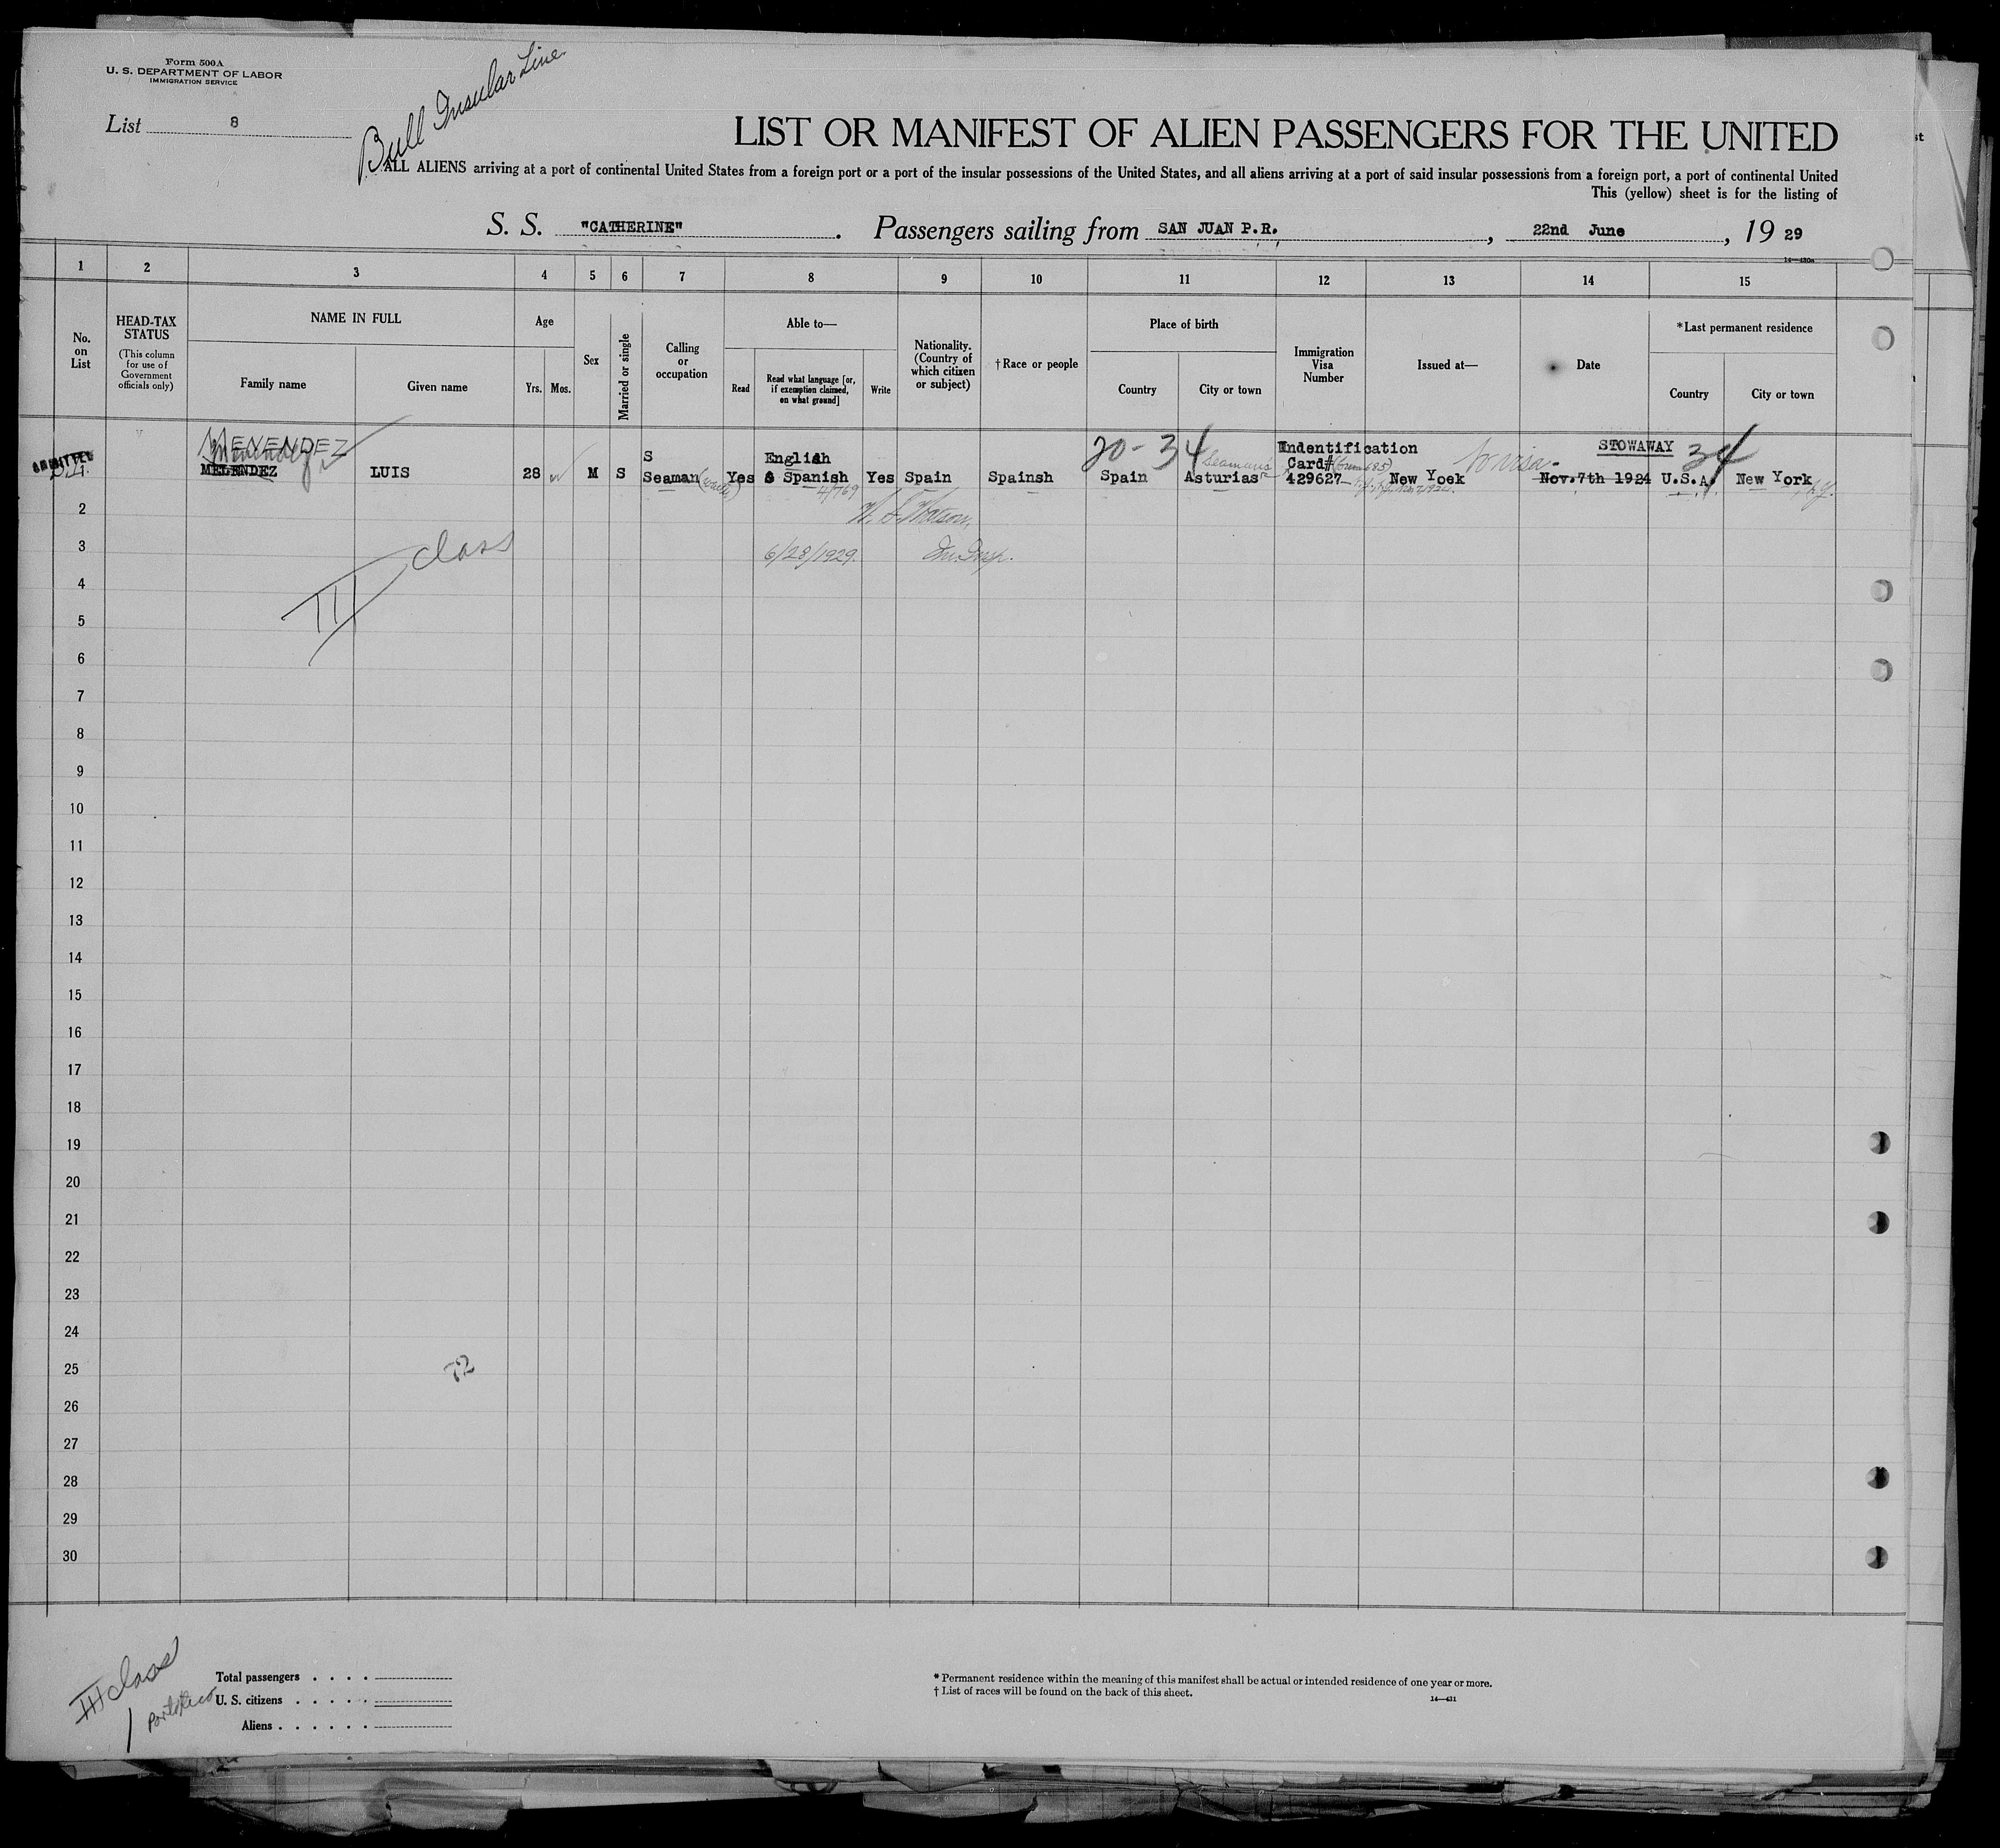 Form 500A
U. S. DEPARTMENT OF LABOR
IMMIGRATION SERVICE
Bull Insular Line
List 8
LIST OR MANIFEST OF ALIEN PASSENGERS FOR THE UNITED
ALL ALIENS arriving at a port of continental United States from a foreign port or a port of the insular possessions of the United States, and all aliens arriving at a port of said insular possessions from a foreign port, a port of continental United
This (yellow) sheet is for the listing of
S. S. "CATHERINE". Passengers sailing from SAN JUAN P.R. , 22nd June , 19 29
14—430a
1 2 3 4 5 6 7 8 9 10 11 12 13 14 15
No. on List
HEAD-TAX STATUS
(This column for use of Government officials only)
NAME IN FULL
Family name
Given name
Age
Yrs.
Mos.
Sex
Married or single
Calling or occupation
Able to—
Read
Read what language [or, if exemption claimed, on what ground]
Write
Nationality. (Country of which citizen or subject)
†Race or people
Place of birth
Country
City or town
Immigration Visa Number
Issued at—
Date
*Last permanent residence
Country
City or town
MENENDEZ
20-34
STOWAWAY
34
MELENDEZ LUIS 28 M S
S
Seaman
Yes
English
& Spanish
Yes Spain Spainsh Spain Asturias
Seaman's
Indentification
Card#
429627
New Yoek
no visa
Nov.7th 1924 U.S.A. New York
N.Y.
W. S. Watson,
6/28/1929. Im. Insp.
III class
2
3
4
5
6
7
8
9
10
11
12
13
14
15
16
17
18
19
20
21
22
23
24
25
72
26
27
28
29
30
III class
1
Total passengers . . . .
U. S. citizens . . . . .
Aliens . . . . . .
* Permanent residence within the meaning of this manifest shall be actual or intended residence of one year or more.
† List of races will be found on the back of this sheet.
14—431